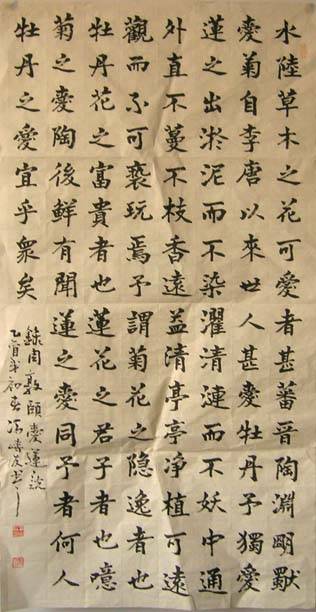 水陸草木之花可愛者甚蕃晉陶淵明獨
愛菊自李唐以來世人甚愛牡丹予獨愛
蓮之出淤泥而不染濯清漣而不妖中通
外直不蔓不枝香遠益清亭亭净植可遠
觀而不可褻玩焉予謂菊花之隐逸者也
牡丹花之富貴者也蓮花之君子者也噫
菊之愛陶後鮮有聞蓮之愛同予者何人
牡丹之愛宜乎衆矣
錄周敦頤愛蓮說
乙酉年初春